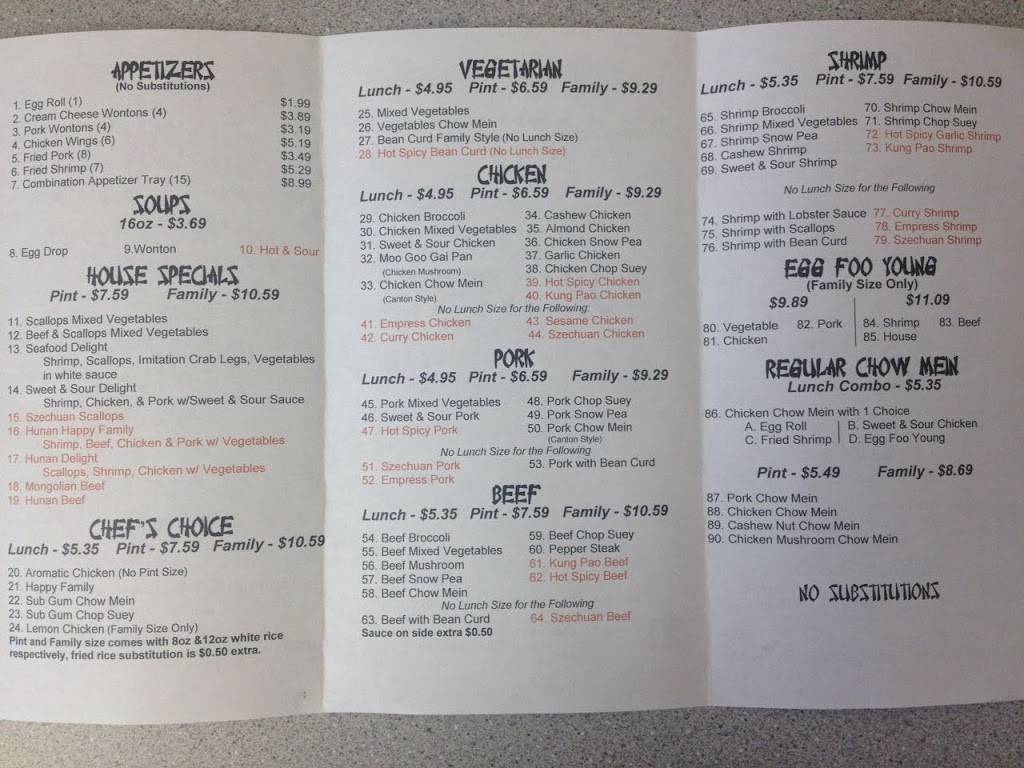 APPETIZERS
(No Substitutions)
1. Egg Roll (1) $1.99
2. Cream Cheese Wontons (4) $3.89
3. Pork Wontons (4) $3.19
4. Chicken Wings (6) $5.19
5. Fried Pork (8) $3.49
6. Fried Shrimp (7) $5.29
7. Combination Appetizer Tray (15) $8.99
SOUPS
16oz - $3.69
8. Egg Drop 9.Wonton 10. Hot & Sour
HOUSE SPECIALS
Pint - $7.59 Family - $10.59
11. Scallops Mixed Vegetables
12. Beef & Scallops Mixed Vegetables
13. Seafood Delight
Shrimp, Scallops, Imitation Crab Legs, Vegetables
in white sauce
14. Sweet & Sour Delight
Shrimp, Chicken, & Pork w/Sweet & Sour Sauce
15. Szechuan Scallops
16. Hunan Happy Family
Shrimp, Beef, Chicken & Pork w/ Vegetables
17. Hunan Delight
Scallops, Shrimp, Chicken w/ Vegetables
18. Mongolian Beef
19. Hunan Beef
CHEF'S CHOICE
Lunch - $5.35 Pint - $7.59 Family - $10.59
20. Aromatic Chicken (No Pint Size)
21. Happy Family
22. Sub Gum Chow Mein
23. Sub Gum Chop Suey
24. Lemon Chicken (Family Size Only)
Pint and Family size comes with 8oz &12oz white rice
respectively, fried rice substitution is $0.50 extra.
VEGETARIAN
Lunch - $4.95 Pint - $6.59 Family - $9.29
25. Mixed Vegetables
26. Vegetables Chow Mein
27. Bean Curd Family Style (No Lunch Size)
28. Hot Spicy Bean Curd (No Lunch Size)
CHICKEN
Lunch - $4.95 Pint - $6.59 Family - $9.29
29. Chicken Broccoli
30. Chicken Mixed Vegetables
31. Sweet & Sour Chicken
32. Moo Goo Gai Pan
(Chicken Mushroom)
33. Chicken Chow Mein
(Canton Style)
34. Cashew Chicken
35. Almond Chicken
36. Chicken Snow Pea
37. Garlic Chicken
38. Chicken Chop Suey
39. Hot Spicy Chicken
40. Kung Pao Chicken
No Lunch Size for the Following:
41. Empress Chicken
42. Curry Chicken
43. Sesame Chicken
44. Szechuan Chicken
PORK
Lunch - $4.95 Pint - $6.59 Family - $9.29
45. Pork Mixed Vegetables
46. Sweet & Sour Pork
47. Hot Spicy Pork
48. Pork Chop Suey
49. Pork Snow Pea
50. Pork Chow Mein
(Canton Style)
No Lunch Size for the Following
51. Szechuan Pork
52. Empress Pork
53. Pork with Bean Curd
BEEF
Lunch - $5.35 Pint - $7.59 Family - $10.59
54. Beef Broccoli
55. Beef Mixed Vegetables
56. Beef Mushroom
57. Beef Snow Pea
58. Beef Chow Mein
59. Beef Chop Suey
60. Pepper Steak
61. Kung Pao Beef
62. Hot Spicy Beef
No Lunch Size for the Following
63. Beef with Bean Curd
64. Szechuan Beef
Sauce on side extra $0.50
SHRIMP
Lunch - $5.35 Pint - $7.59 Family - $10.59
65. Shrimp Broccoli
66. Shrimp Mixed Vegetables
67. Shrimp Snow Pea
68. Cashew Shrimp
69. Sweet & Sour Shrimp
70. Shrimp Chow Mein
71. Shrimp Chop Suey
72. Hot Spicy Garlic Shrimp
73. Kung Pao Shrimp
No Lunch Size for the Following
74. Shrimp with Lobster Sauce
75. Shrimp with Scallops
76. Shrimp with Bean Curd
77. Curry Shrimp
78. Empress Shrimp
79. Szechuan Shrimp
EGG FOO YOUNG
(Family Size Only)
$9.89 $11.09
80. Vegetable 82. Pork 84. Shrimp 83. Beef
81. Chicken 85. House
REGULAR CHOW MEIN
Lunch Combo - $5.35
86. Chicken Chow Mein with 1 Choice
A. Egg Roll B. Sweet & Sour Chicken
C. Fried Shrimp D. Egg Foo Young
Pint - $5.49 Family - $8.69
87. Pork Chow Mein
88. Chicken Chow Mein
89. Cashew Nut Chow Mein
90. Chicken Mushroom Chow Mein
NO SUBSTITUTIONS